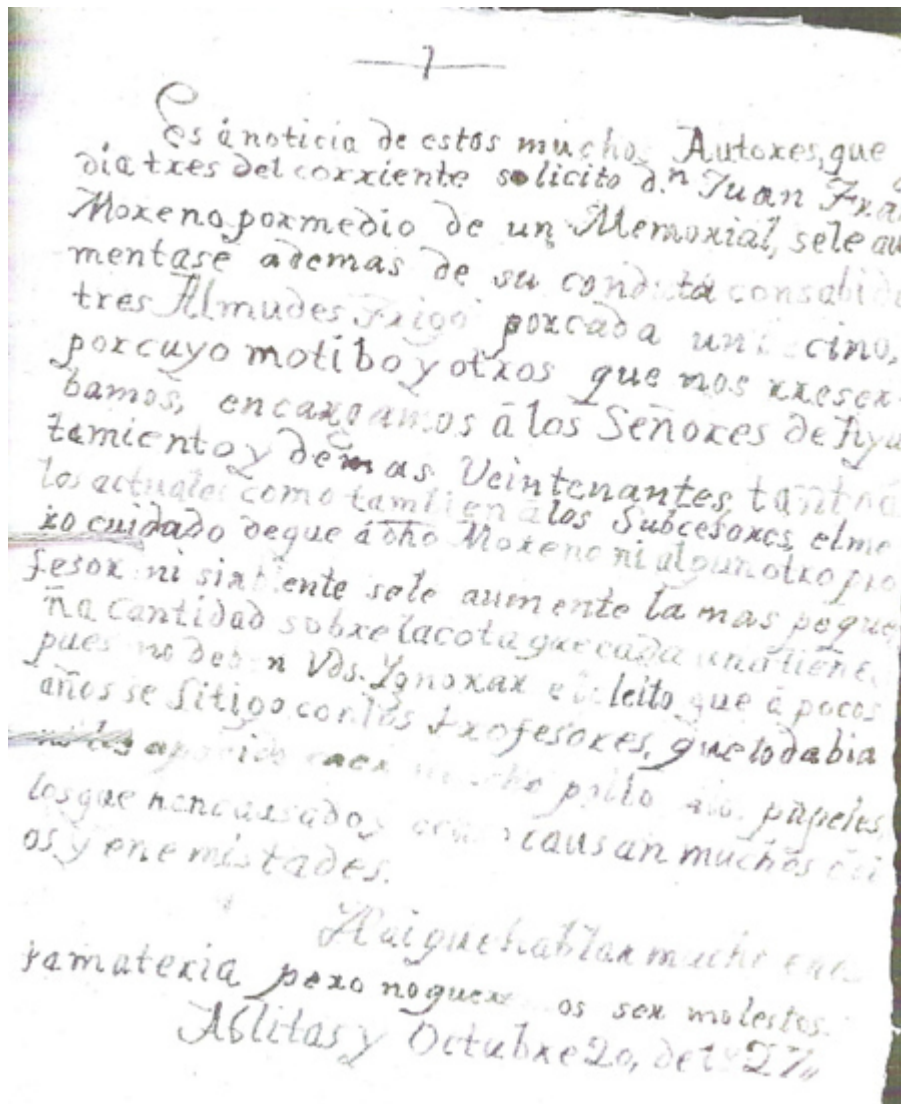 7
Es á noticia de estos muchos Autores, que
dia tres del corriente solicito d.n Juan Fra
Moreno por medio de un Memorial, sele au
mentase ademas de su conducta consabid
tres Almudes Trigo por cada un cino,
por cuyo motibo y otros que nos rreser
bamos, encargamos á los Señores de Ayu
tamiento y demas Veintenantes, tanto á
los actuales como tambien a los Subcesores, el me
ro cuidado de que á dho Moreno ni algun otro pro
fesor ni sirbiente sele aumente la mas peque
ña cantidad sobre la cota que cada uno tiene,
pues no deben Vds. Ygnorar el pleito que á pocos
años se litigo con los Profesores, que todabia
caer pollo papeles,
los que han causado y causan muchos
os y enemistades.
Hai que hablar mucho en
ta materia pero no quer os ser molestos.
Ablitas y Octubre 20, de 27,,